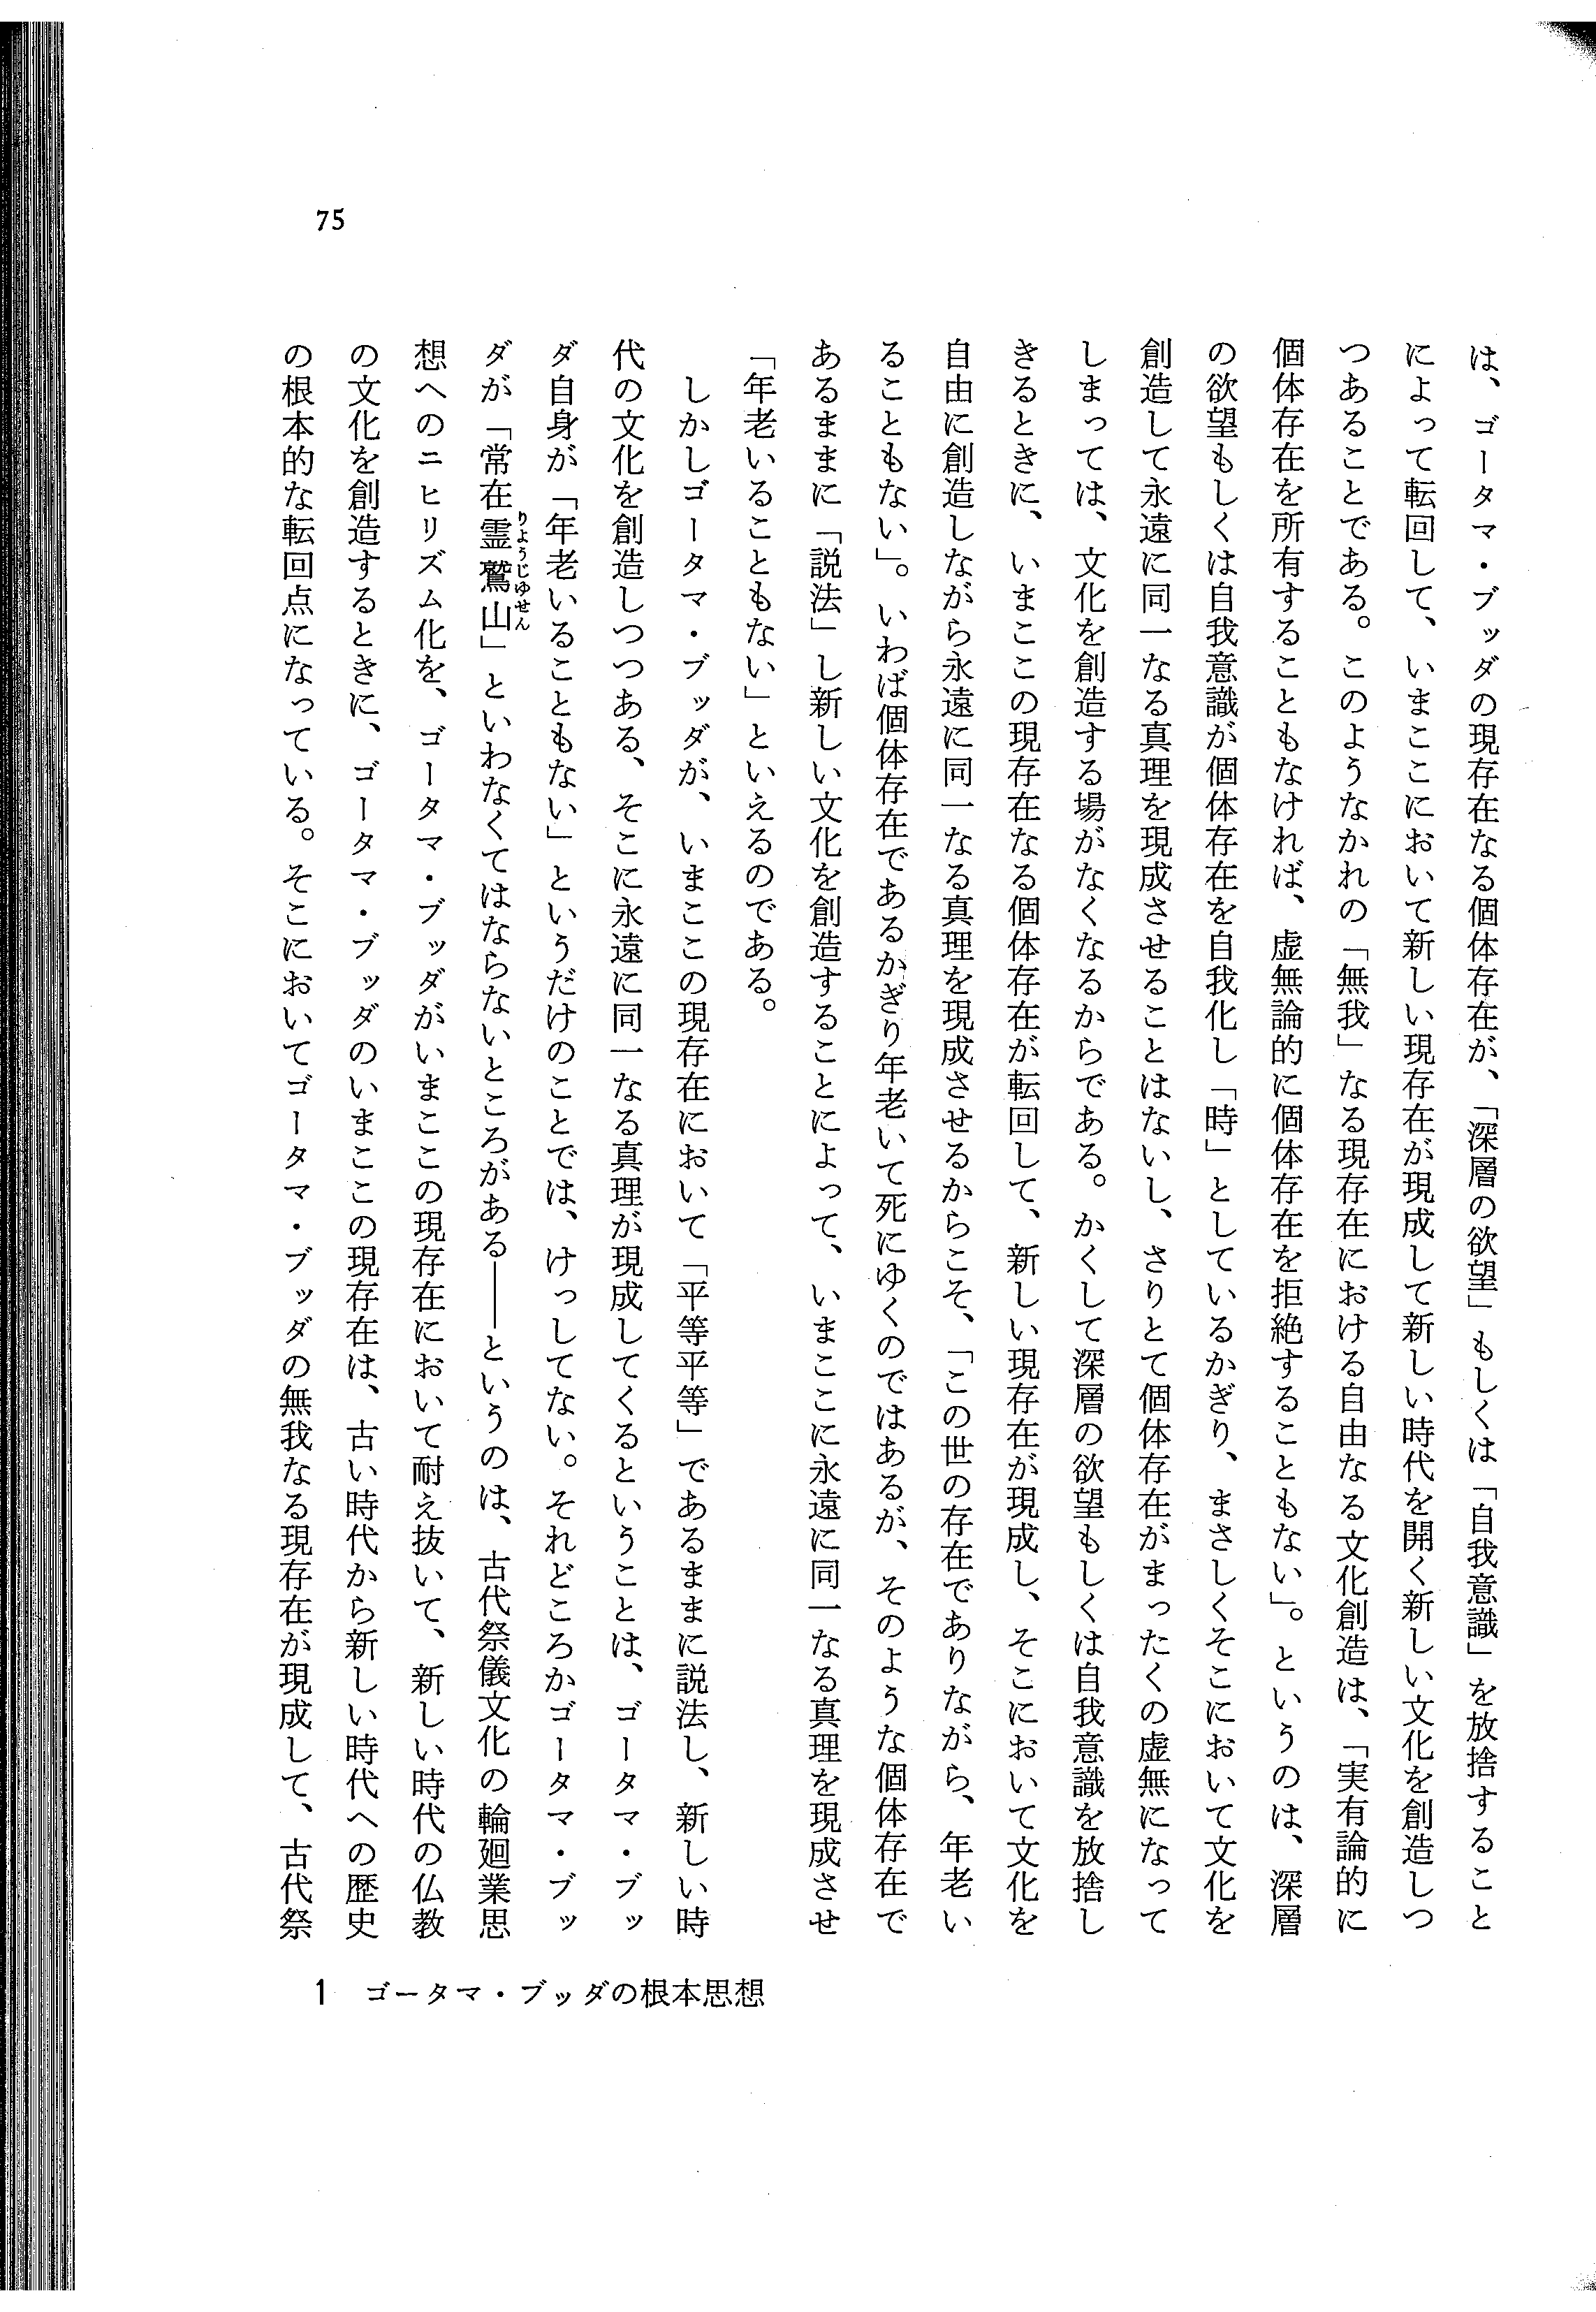 75
は、ゴータマ・ブッダの現存在なる個体存在が、「深層の欲望」もしくは「自我意識」を放捨すること
によって転回して、いまここにおいて新しい現存在が現成して新しい時代を開く新しい文化を創造しつ
つあることである。このようなかれの「無我」なる現存在における自由なる文化創造は、「実有論的に
個体存在を所有することもなければ、虚無論的に個体存在を拒絶することもない」。というのは、深層
の欲望もしくは自我意識が個体存在を自我化し「時」としているかぎり、まさしくそこにおいて文化を
創造して永遠に同一なる真理を現成させることはないし、さりとて個体存在がまったくの虚無になって
しまっては、文化を創造する場がなくなるからである。かくして深層の欲望もしくは自我意識を放捨し
きるときに、いまここの現存在なる個体存在が転回して、新しい現存在が現成し、そこにおいて文化を
自由に創造しながら永遠に同一なる真理を現成させるからこそ、「この世の存在でありながら、年老い
ることもない」。いわば個体存在であるかぎり年老いて死にゆくのではあるが、そのような個体存在で
あるままに「説法」し新しい文化を創造することによって、いまここに永遠に同一なる真理を現成させ
「年老いることもない」といえるのである。
しかしゴータマ・ブッダが、いまここの現存在において「平等平等」であるままに説法し、新しい時
代の文化を創造しつつある、そこに永遠に同一なる真理が現成してくるということは、ゴータマ・ブッ
ダ自身が「年老いることもない」というだけのことでは、けっしてない。それどころかゴータマ・ブッ
ダが「常在霊鷲山」といわなくてはならないところがある――というのは、古代祭儀文化の輪廻業思
りようじゆせん
想へのニヒリズム化を、ゴータマ・ブッダがいまここの現存在において耐え抜いて、新しい時代の仏教
の文化を創造するときに、ゴータマ・ブッダのいまここの現存在は、古い時代から新しい時代への歴史
の根本的な転回点になっている。そこにおいてゴータマ・ブッダの無我なる現存在が現成して、古代祭
1 ゴータマ・ブッダの根本思想